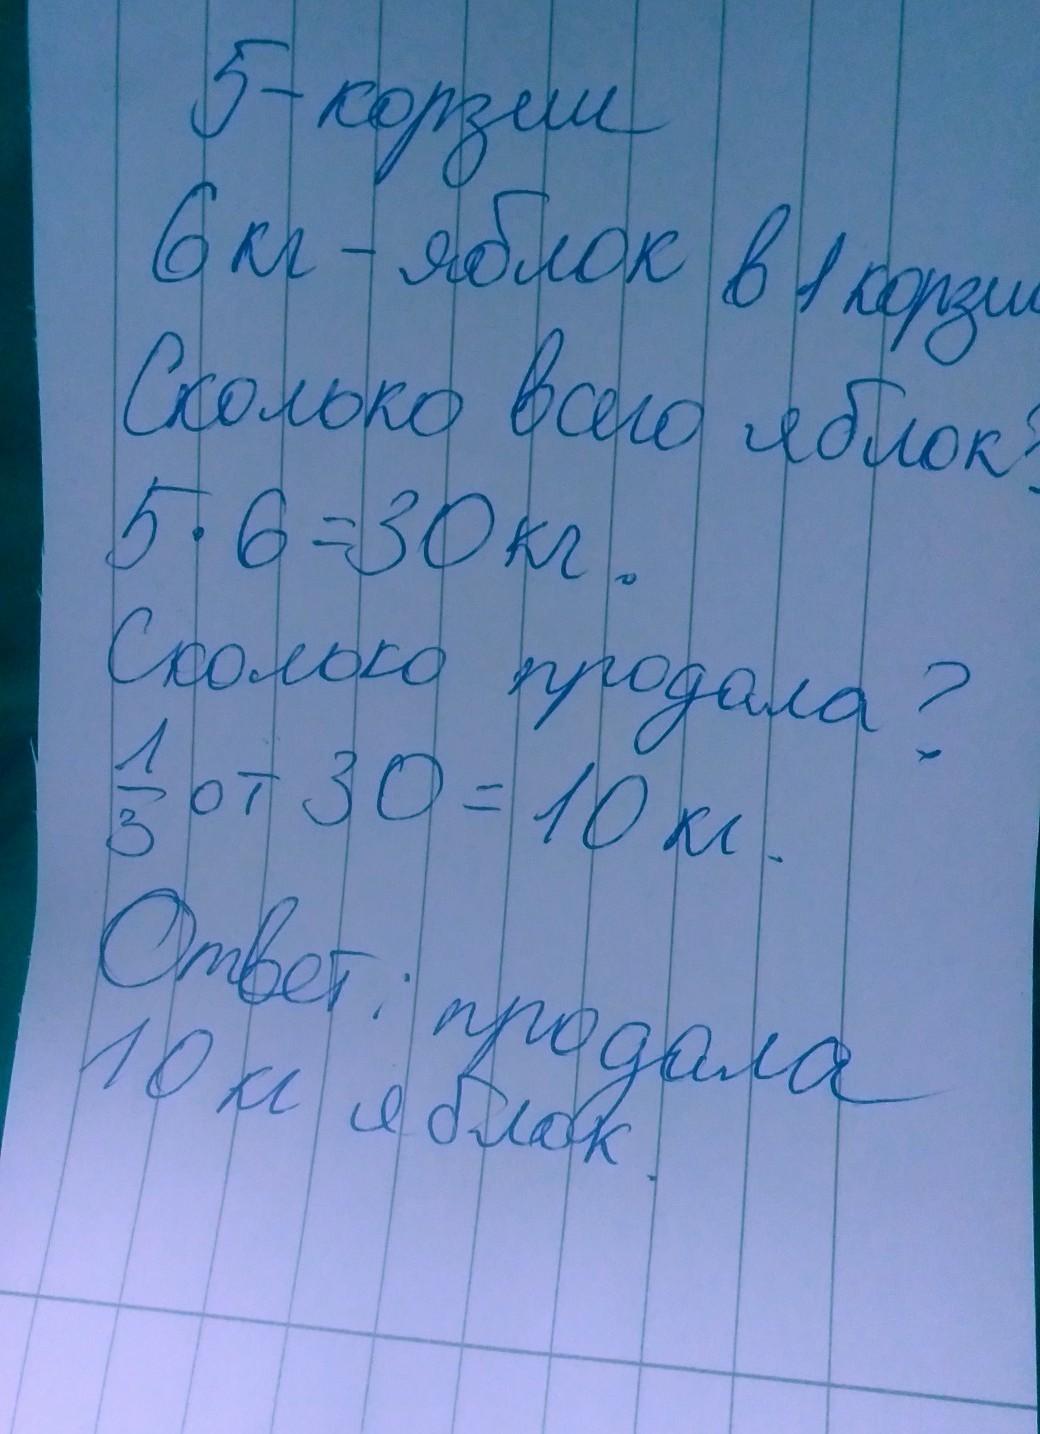 5-корзин
6 кг - яблок в 1 корзин
Сколько всего яблок?
5·6=30кг.
Сколько продала?
1/3 от 30 = 10 кг.
Ответ: продала
10 кг яблок.